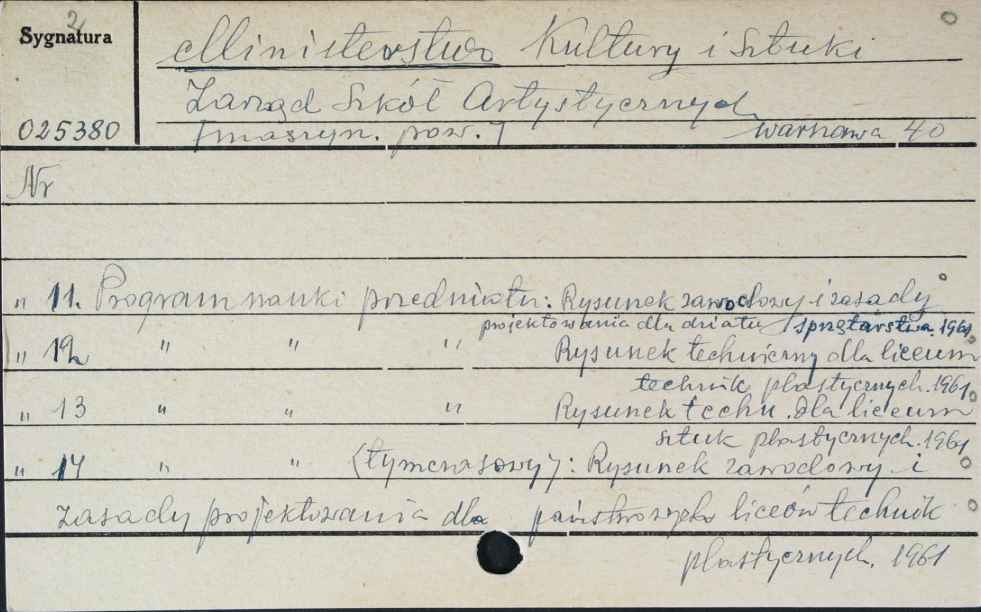 2
Sygnatura
025380
Ministerstwo Kultury i Sztuki
Zarząd Szkół Artystycznych
[maszyn. pow.] Warszawa 40
Nr
" 11. Program nauki przedmiotu: Rysunek zawodowy i zasady
projektowania dla działu sprzętarstwa. 1961
" 12 " " " Rysunek techniczny dla liceum
technik plastycznych. 1961
" 13 " " " Rysunek techn. dla liceum
sztuk plastycznych. 1961
" 14 " " (tymczasowy): Rysunek zawodowy i
zasady projektowania dla liceów technik
plastycznych. 1961